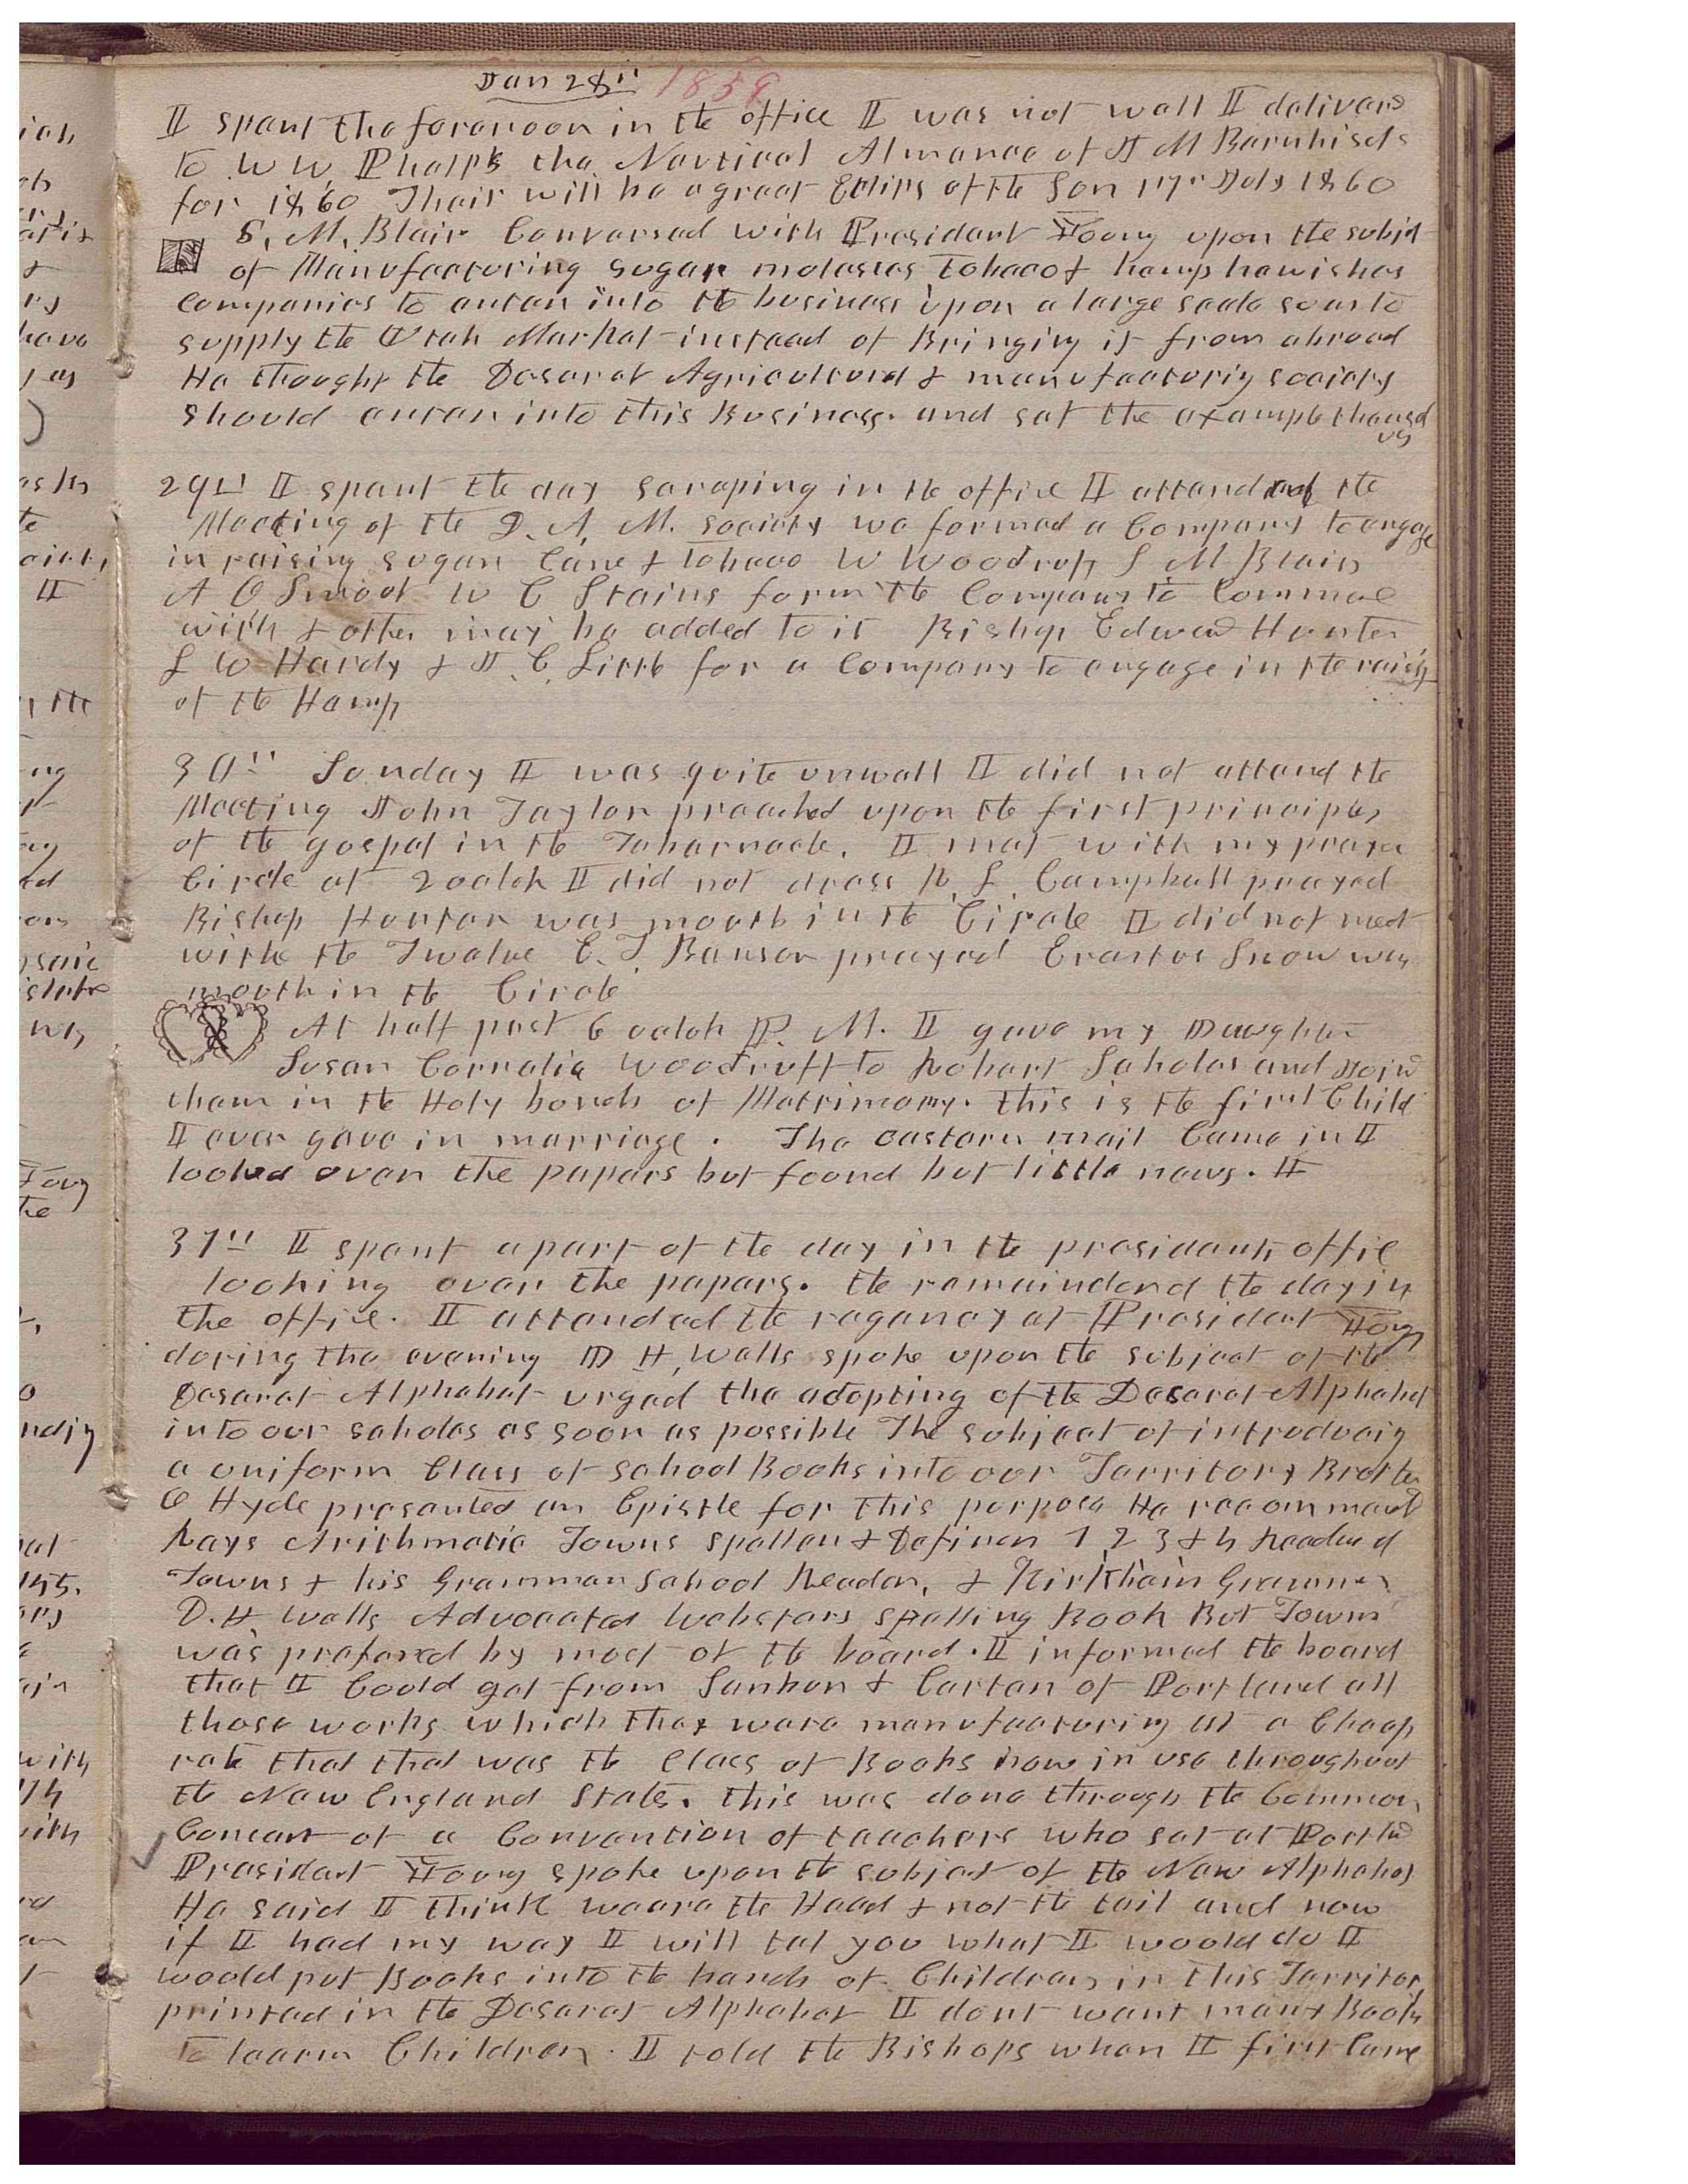 Jan 28th 1859
I spent the forenoon in the office I was not well I deliverd
to W W Phelps the Nautical Almanac of J M Barnhisels
for 1860 Thair will be a great Eclips of the Son 17th July 1860
S. M. Blair Conversed with President Young upon the subjet
of Manufacturing sugar molasses tobacco & hemp he wishes
companies to enter into the business upon a large scale so as to
supply the Utah Market instead of Bringing it from abroad
He thought the Deseret Agricultural & manufacturig society
should enter into this Business. and set the example themsel
ves
29th I spent the day scraping in the office I attended the
Meeting of the D. A. M. society we formed a Company to engage
in raising sugar Cane & tobacco W Woodruff S M Blair
A O Smoot W C Stains form the Company to Commece
with & other may be added to it Bishop Edward Hunter
L W Hardy & J. C. Little for a Company to engage in the raisig
of the Hemp
30th Sunday I was quite unwell I did not attend the
Meeting John Taylor preached upon the first principles
of the gospel in the Tabernacle. I met with my prayer
Circle at 2 oclok I did not dress R. L. Campbell prayed
Bishop Hunter was mouth in the Circle I did not meet
with the Twelve E. T. Benson prayed Erastus Snow was
mouth in the Circle
At half past 6 oclok P. M. I gave my Daughter
Susan Cornelia Woodruff to Robert Scholes and Joind
them in the Holy bonds of Matrimony. this is the first Child
I ever gave in marriage. The eastern mail Came in I
looked over the papers but found but little news. I
31st I spent a part of the day in the presidents offic
looking over the papers. the remainderd the day in
the office. I attended the regency at President Young
during the evening D H. Wells spoke upon the subject of the
Deseret Alphabet urged the adopting of the Deseret Alphabet
into our scholes as soon as possible The subject of introducig
a uniform Class of School Books into our Territory Brother
O Hyde presented an Epistle for this purpose He recommend
Rays Arithmatic Towns speller & Definer 1 2 3 & 4 Reader of
Towns & his Grammar School Reader, & Kirkham Grammer
D. H Wells Advocated Websters Spelling Book But Towns
was prefered by most of the board. I informed the board
that I Could get from Sanbon & Carter of Portland all
those works which they were manufacturing at a Cheap
rate that that was the Class of Books now in use throughout
the New England States. this was done through the Common
Concert of a Convention of teachers who sat at Portld
President Young spoke upon the subjet of the New Alphabet
He said I think we are the Head & not the tail and now
if I had my way I will tel you what I would do I
would put Books into the hands of Children in this Territory
printed in the Deseret Alphabet I dont want many Books
to learn Children. I told the Bishops when I first Came